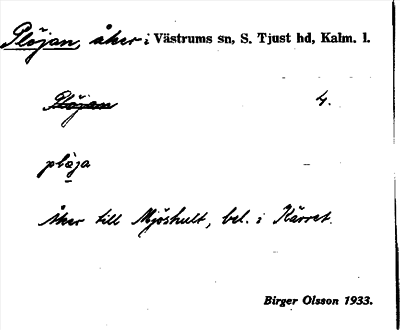 Plöjan, åker i Västrums sn, S. Tjust hd, Kalm. l.
Plöjan 4.
plöja
åker till Mjöshult, bel. i Kärret.
Birger Olsson 1933.